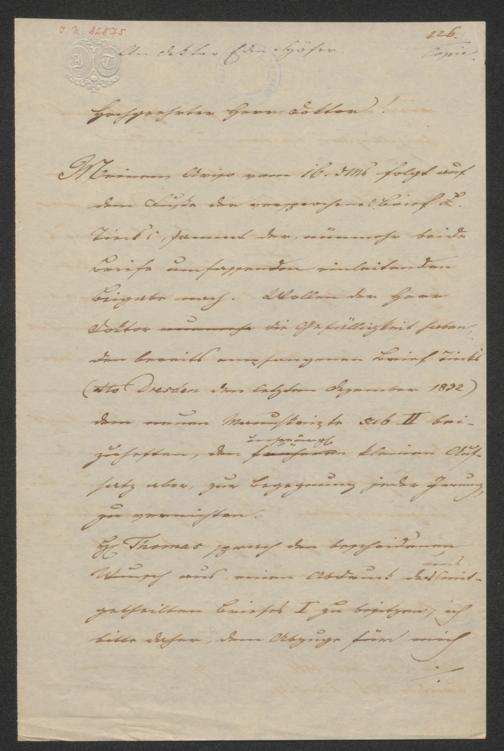 I. N. 42875
226.
An Doktor Edm. Höfer
Copie.
Hochgeehrter Herr Doktor!
Meinem Aviso vom 16. dMs folgt auf
dem Fuße der versprochene Brief L.
Tiecks, sammt der, nunmehr beide
Briefe umfassenden einleitenden
Beigabe nach. Wollen der Herr
Doktor nunmehr die Gefälligkeit haben,
den bereits empfangenen Brief Tiecks
(dto Dresden den letzten Dezember 1832)
dem neuen Manuskripte sub II bei-
zuheften, den früheren kleinen Auf-
satz aber, zur Begegnung jeder Irrung,
zu vernichten.
H Thomas sprach den bescheidenen
Wunsch aus einen Abdruck des mit-
getheilten Briefes I zu besitzen, ich
bitte daher, dem Abzuge für mich
./.